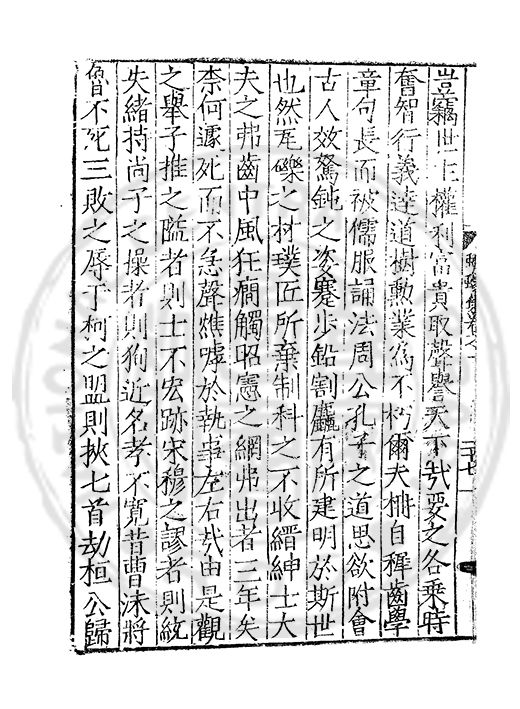 豈竊世主權利富貴取聲譽天下哉要之各乘時
奮智行義達道樹勳業為不朽爾夫柟自稺齒學
章句長而被儒服誦法周公孔子之道思欲附會
古人效駑鈍之姿蹇步鉛割麤有所建明於斯世
也然瓦礫之材璞匠所棄制科之不收縉紳士大
夫之弗齒中風狂癎觸昭憲之網弗出者三年矣
柰何遽死而不急聲燋嘑於執事左右哉由是觀
之舉子推之隘者則士不宏跡宋穆之謬者則統
失緒持尚子之操者則狥近名孝不寬昔曹沬將
魯不死三敗之辱于柯之盟則挾匕首劫桓公歸